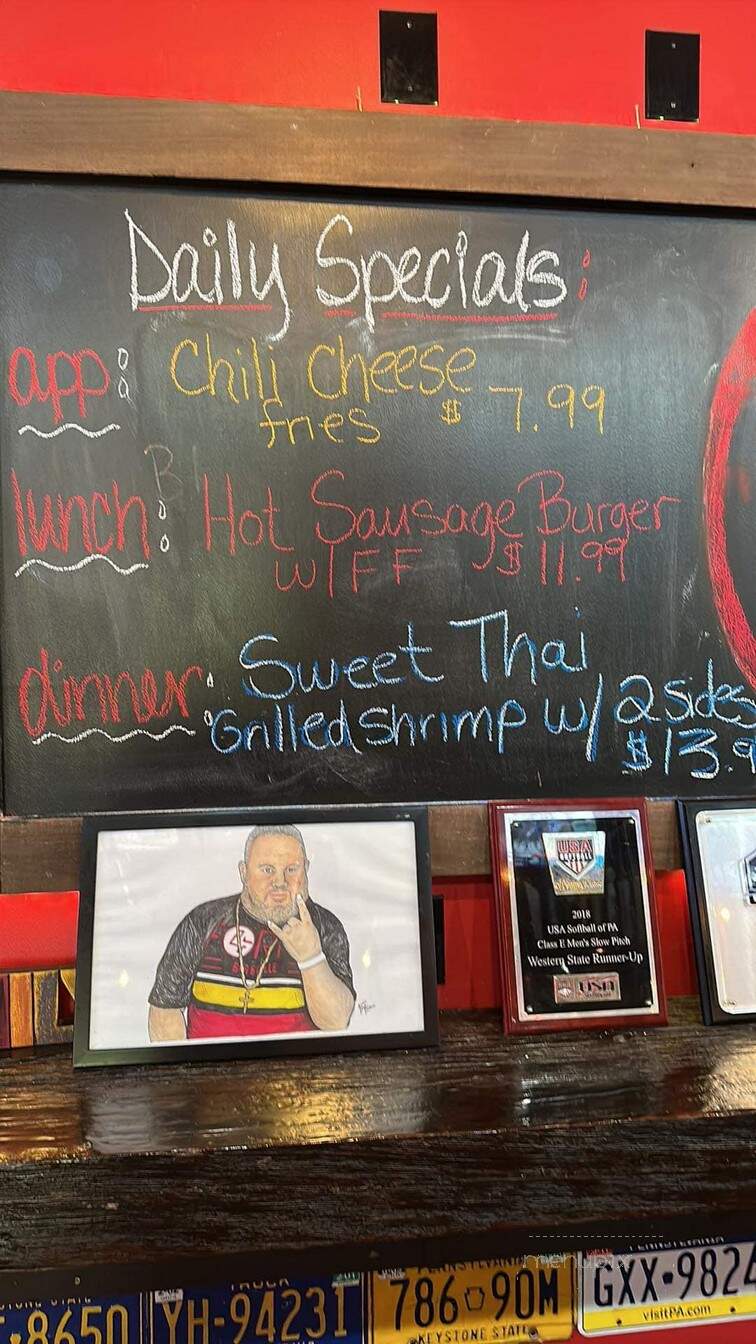 Daily Specials:
app: Chili Cheese
fries $7.99
lunch: Hot Sausage Burger
w/FF $11.99
dinner: Sweet Thai
Grilled shrimp w/ 2 sides
$13.9
USA
2018
USA Softball of PA
Class E Men's Slow Pitch
Western State Runner-Up
USA
8650
TRUCK
YH-94231
PENNSYLVANIA
786 90M
KEYSTONE STATE
PENNSYLVANIA
GXX-9826
visitPA.com
menupix